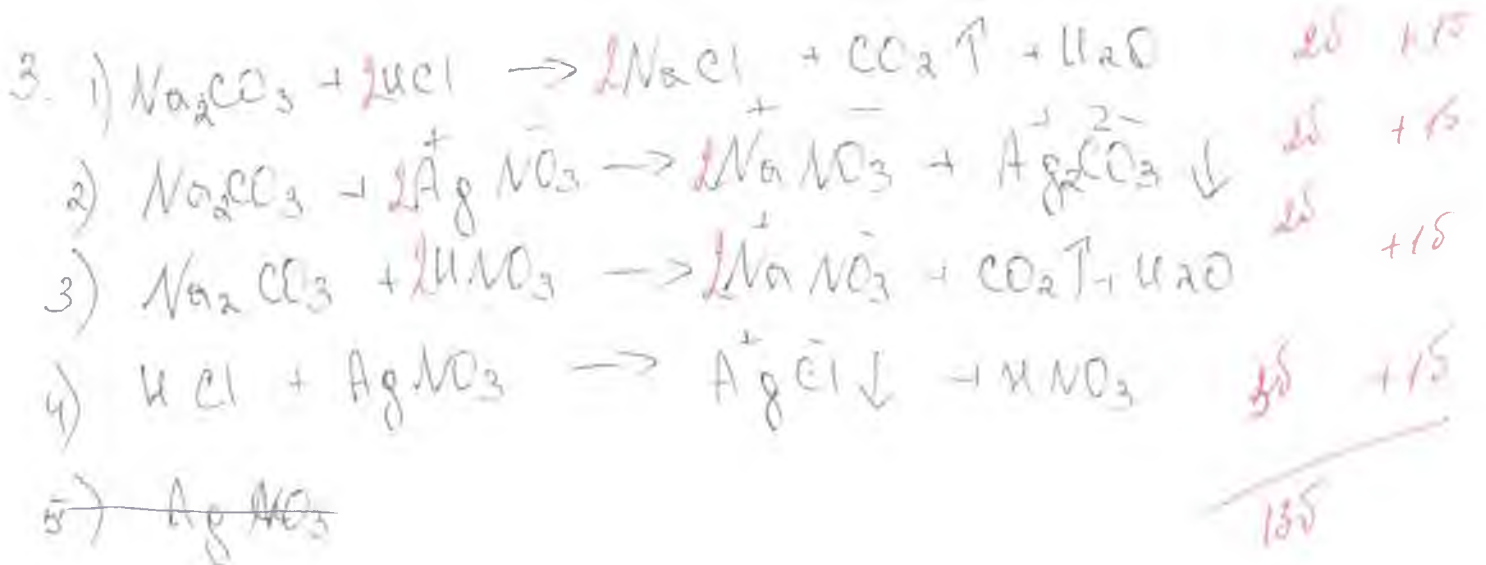 3. 1) Na₂CO₃ + 2HCl → 2NaCl + CO₂↑ + H₂O 2б +1б
2) Na₂CO₃ + 2Ag⁺NO₃⁻ → 2Na⁺NO₃⁻ + Ag₂⁺CO₃²⁻↓ 2б +1б
3) Na₂CO₃ + 2HNO₃ → 2Na⁺NO₃⁻ + CO₂↑ + H₂O 2б +1б
4) HCl + AgNO₃ → Ag⁺Cl⁻↓ + HNO₃ 3б +1б
5) AgNO₃
13б